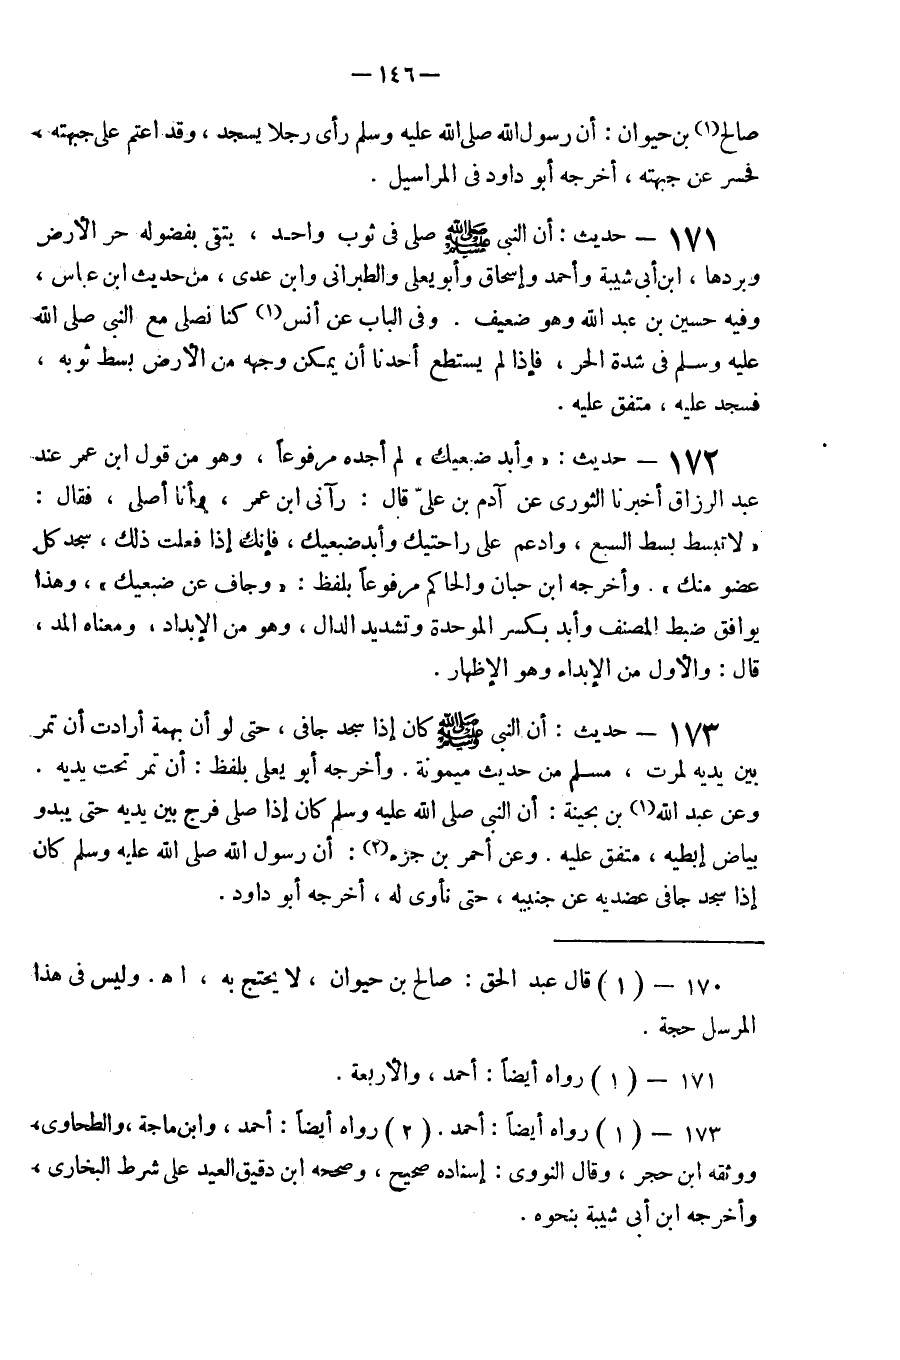 — ١٤٦ —
صالح(١) بن حيوان : أن رسول الله صلى الله عليه وسلم رأى رجلا يسجد ، وقد اعتم على جبهته ،
فحسر عن جبهته ، أخرجه أبو داود فى المراسيل .
١٧١ — حديث : أن النبى ﷺ صلى فى ثوب واحد ، يتقى بفضوله حر الأرض
وبردها ، ابن أبى شيبة وأحمد وإسحاق وأبو يعلى والطبرانى وابن عدى ، من حديث ابن عباس ،
وفيه حسين بن عبد الله وهو ضعيف . وفى الباب عن أنس(١) كنا نصلى مع النبى صلى الله
عليه وسلم فى شدة الحر ، فإذا لم يستطع أحدنا أن يمكن وجهه من الأرض بسط ثوبه ،
فسجد عليه ، متفق عليه .
١٧٢ — حديث : « وأبد ضبعيك » لم أجده مرفوعاً ، وهو من قول ابن عمر عند
عبد الرزاق أخبرنا الثورى عن آدم بن علىّ قال : رآنى ابن عمر ، وأنا أصلى ، فقال :
« لا تبسط بسط السبع ، وادعم على راحتيك وأبد ضبعيك ، فإنك إذا فعلت ذلك ، سجد كل
عضو منك » . وأخرجه ابن حبان والحاكم مرفوعاً بلفظ : « وجاف عن ضبعيك » ، وهذا
يوافق ضبط المصنف وأبد بكسر الموحدة وتشديد الدال ، وهو من الإبداد ، ومعناه المد ،
قال : والأول من الإبداء وهو الإظهار .
١٧٣ — حديث : أن النبى ﷺ كان إذا سجد جافى ، حتى لو أن بهمة أرادت أن تمر
بين يديه لمرت ، مسلم من حديث ميمونة . وأخرجه أبو يعلى بلفظ : أن تمر تحت يديه .
وعن عبد الله(١) بن بحينة : أن النبى صلى الله عليه وسلم كان إذا صلى فرج بين يديه حتى يبدو
بياض إبطيه ، متفق عليه . وعن أحمر بن جزء(٢) : أن رسول الله صلى الله عليه وسلم كان
إذا سجد جافى عضديه عن جنبيه ، حتى نأوى له ، أخرجه أبو داود .
١٧٠ — ( ١ ) قال عبد الحق : صالح بن حيوان ، لا يحتج به ، ا ه . وليس فى هذا
المرسل حجة .
١٧١ — ( ١ ) رواه أيضاً : أحمد ، والأربعة .
١٧٣ — ( ١ ) رواه أيضاً : أحمد . ( ٢ ) رواه أيضاً : أحمد ، وابن ماجة ، والطحاوى ،
ووثقه ابن حجر ، وقال النووى : إسناده صحيح ، وصححه ابن دقيق العيد على شرط البخارى ،
وأخرجه ابن أبى شيبة بنحوه .